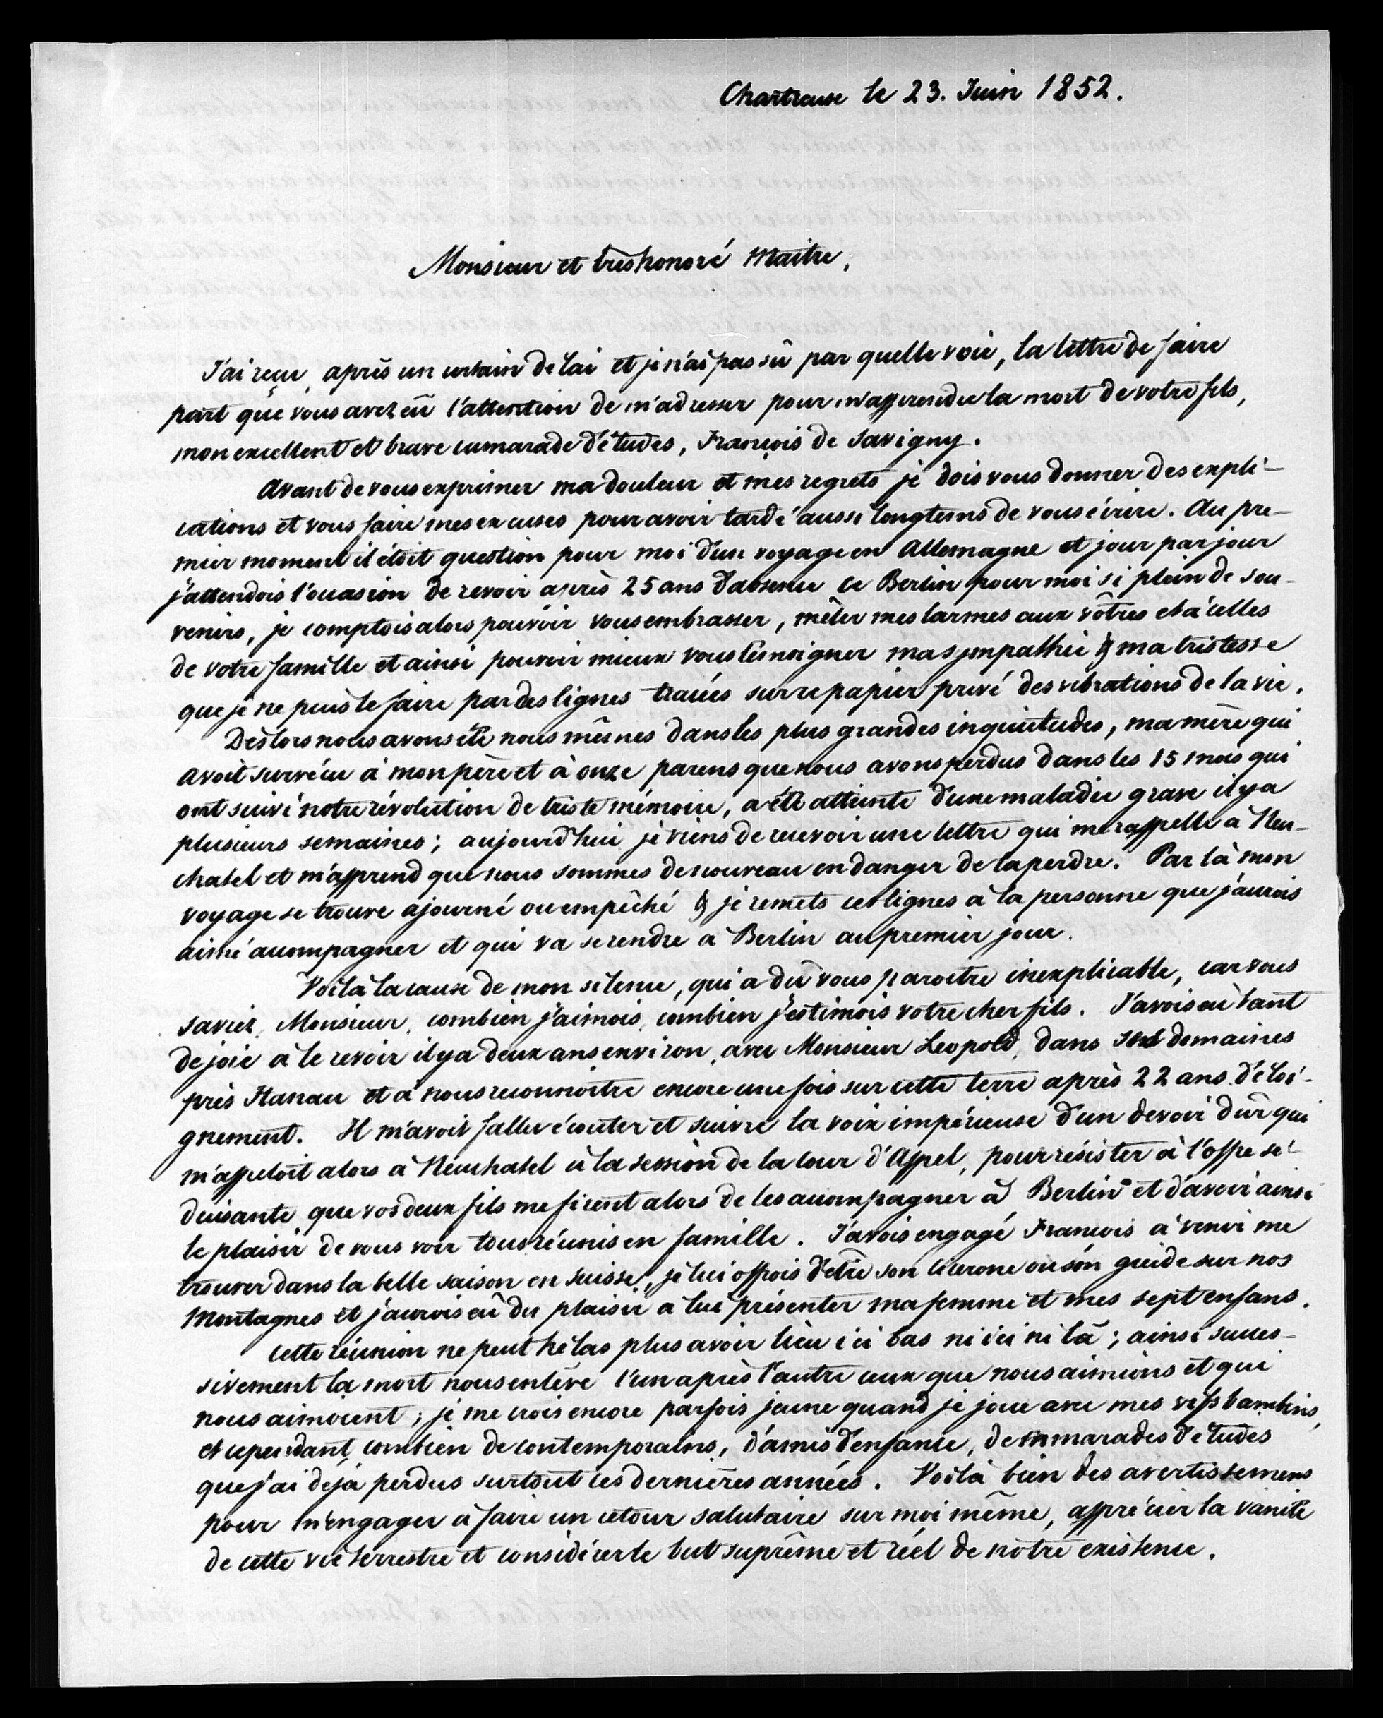 Chartreuse le 23. Juin 1852.
Monsieur et très honoré Maitre,
J'ai reçu, après un certain délai et je n'ai pas sû par quelle voie, la lettre de faire
part que vous avez eû l'attention de m'adresser pour m'apprendre la mort de votre fils,
mon excellent et brave camarade d'études, François de Savigny.
Avant de vous exprimer ma douleur et mes regrets je dois vous donner des expli-
cations et vous faire mes excuses pour avoir tardé aussi longtems de vous écrire. Au pre-
mier moment il étoit question pour moi d'un voyage en Allemagne et jour par jour
j'attendois l'occasion de revoir après 25 ans d'absence ce Berlin pour moi si plein de sou-
venirs, je comptois alors pouvoir vous embrasser, mêler mes larmes aux vôtres et à celles
de votre famille et ainsi pouvoir mieux vous témoigner ma sympathie & ma tristesse
que je ne puis le faire par des lignes tracées sur ce papier privé des vibrations de la vie.
Dès lors nous avons été nous mêmes dans les plus grandes inquiétudes, ma mère qui
avoit survécu à mon père et à onze parens que nous avons perdus dans les 15 mois qui
ont suivi notre révolution de triste mémoire, a été atteinte d'une maladie grave il y a
plusieurs semaines; aujourd'hui je viens de recevoir une lettre qui me rappelle à Neu-
chatel et m'apprend que nous sommes de nouveau en danger de la perdre. Par là mon
voyage se trouve ajourné ou empêché & je remets ces lignes à la personne que j'aurois
aimé accompagner et qui va se rendre à Berlin au premier jour.
Voilà la cause de mon silence, qui a dû vous paroitre inexplicable, car vous
saviez, Monsieur, combien j'aimois, combien j'estimois votre cher fils. J'avois eû tant
de joie à le revoir il y a deux ans environ, avec Monsieur Leopold, dans ses domaines
près Hanau et à nous reconnoître encore une fois sur cette terre après 22 ans d'éloi-
gnement. Il m'avoit fallu écouter et suivre la voix impérieuse d'un devoir dur qui
m'appeloit alors à Neuchatel à la session de la Cour d'Appel, pour résister à l'offre sé-
duisante que vos deux fils me firent alors de les accompagner à Berlin et d'avoir ainsi
le plaisir de vous voir tous réunis en famille. J'avois engagé François à venir me
trouver dans la belle saison en Suisse, je lui offrois d'être son cicerone ou son guide sur nos
Montagnes et j'aurois eû du plaisir à lui présenter ma femme et mes sept enfans.
Cette réunion ne peut hélas plus avoir lieu ici bas ni ici ni là; ainsi succes-
sivement la mort nous enlève l'un après l'autre ceux que nous aimions et qui
nous aimoient; je me crois encore parfois jeune quand je joue avec mes vifs bambins,
et cependant combien de contemporains, d'amis d'enfance, de camarades d'études
que j'ai déjà perdus surtout ces dernières années. Voilà bien des avertissemens
pour m'engager à faire un retour salutaire sur moi même, apprécier la vanité
de cette vie terrestre et considérer le but suprême et réel de nôtre existence.